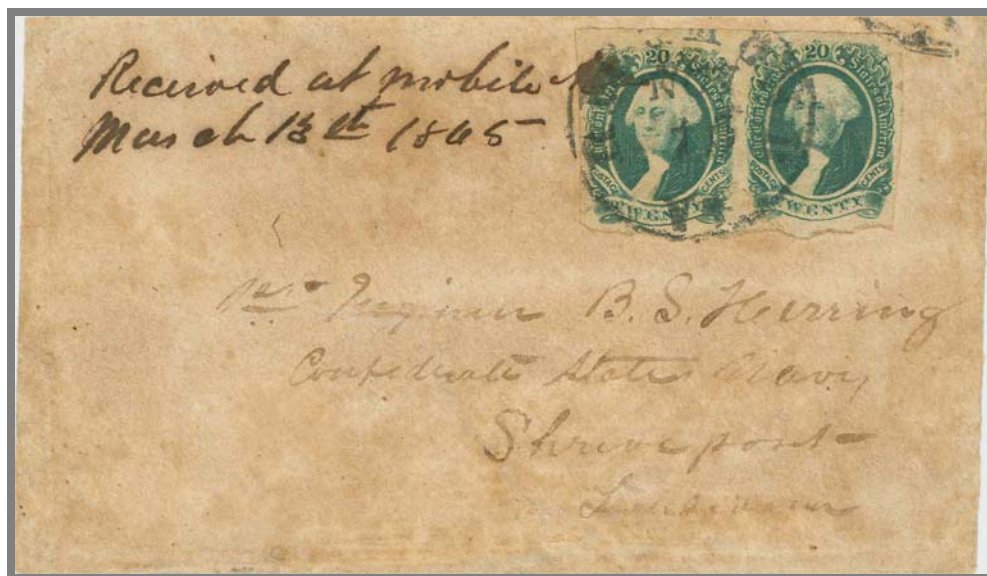 Received at mobile
March 13th 1865
20
The Confederate States of America
POSTAGE CENTS
TWENTY
20
The Confederate States of America
POSTAGE CENTS
TWENTY
Engineer B. S. Herring
Confederate States Navy
Shreveport
Louisiana